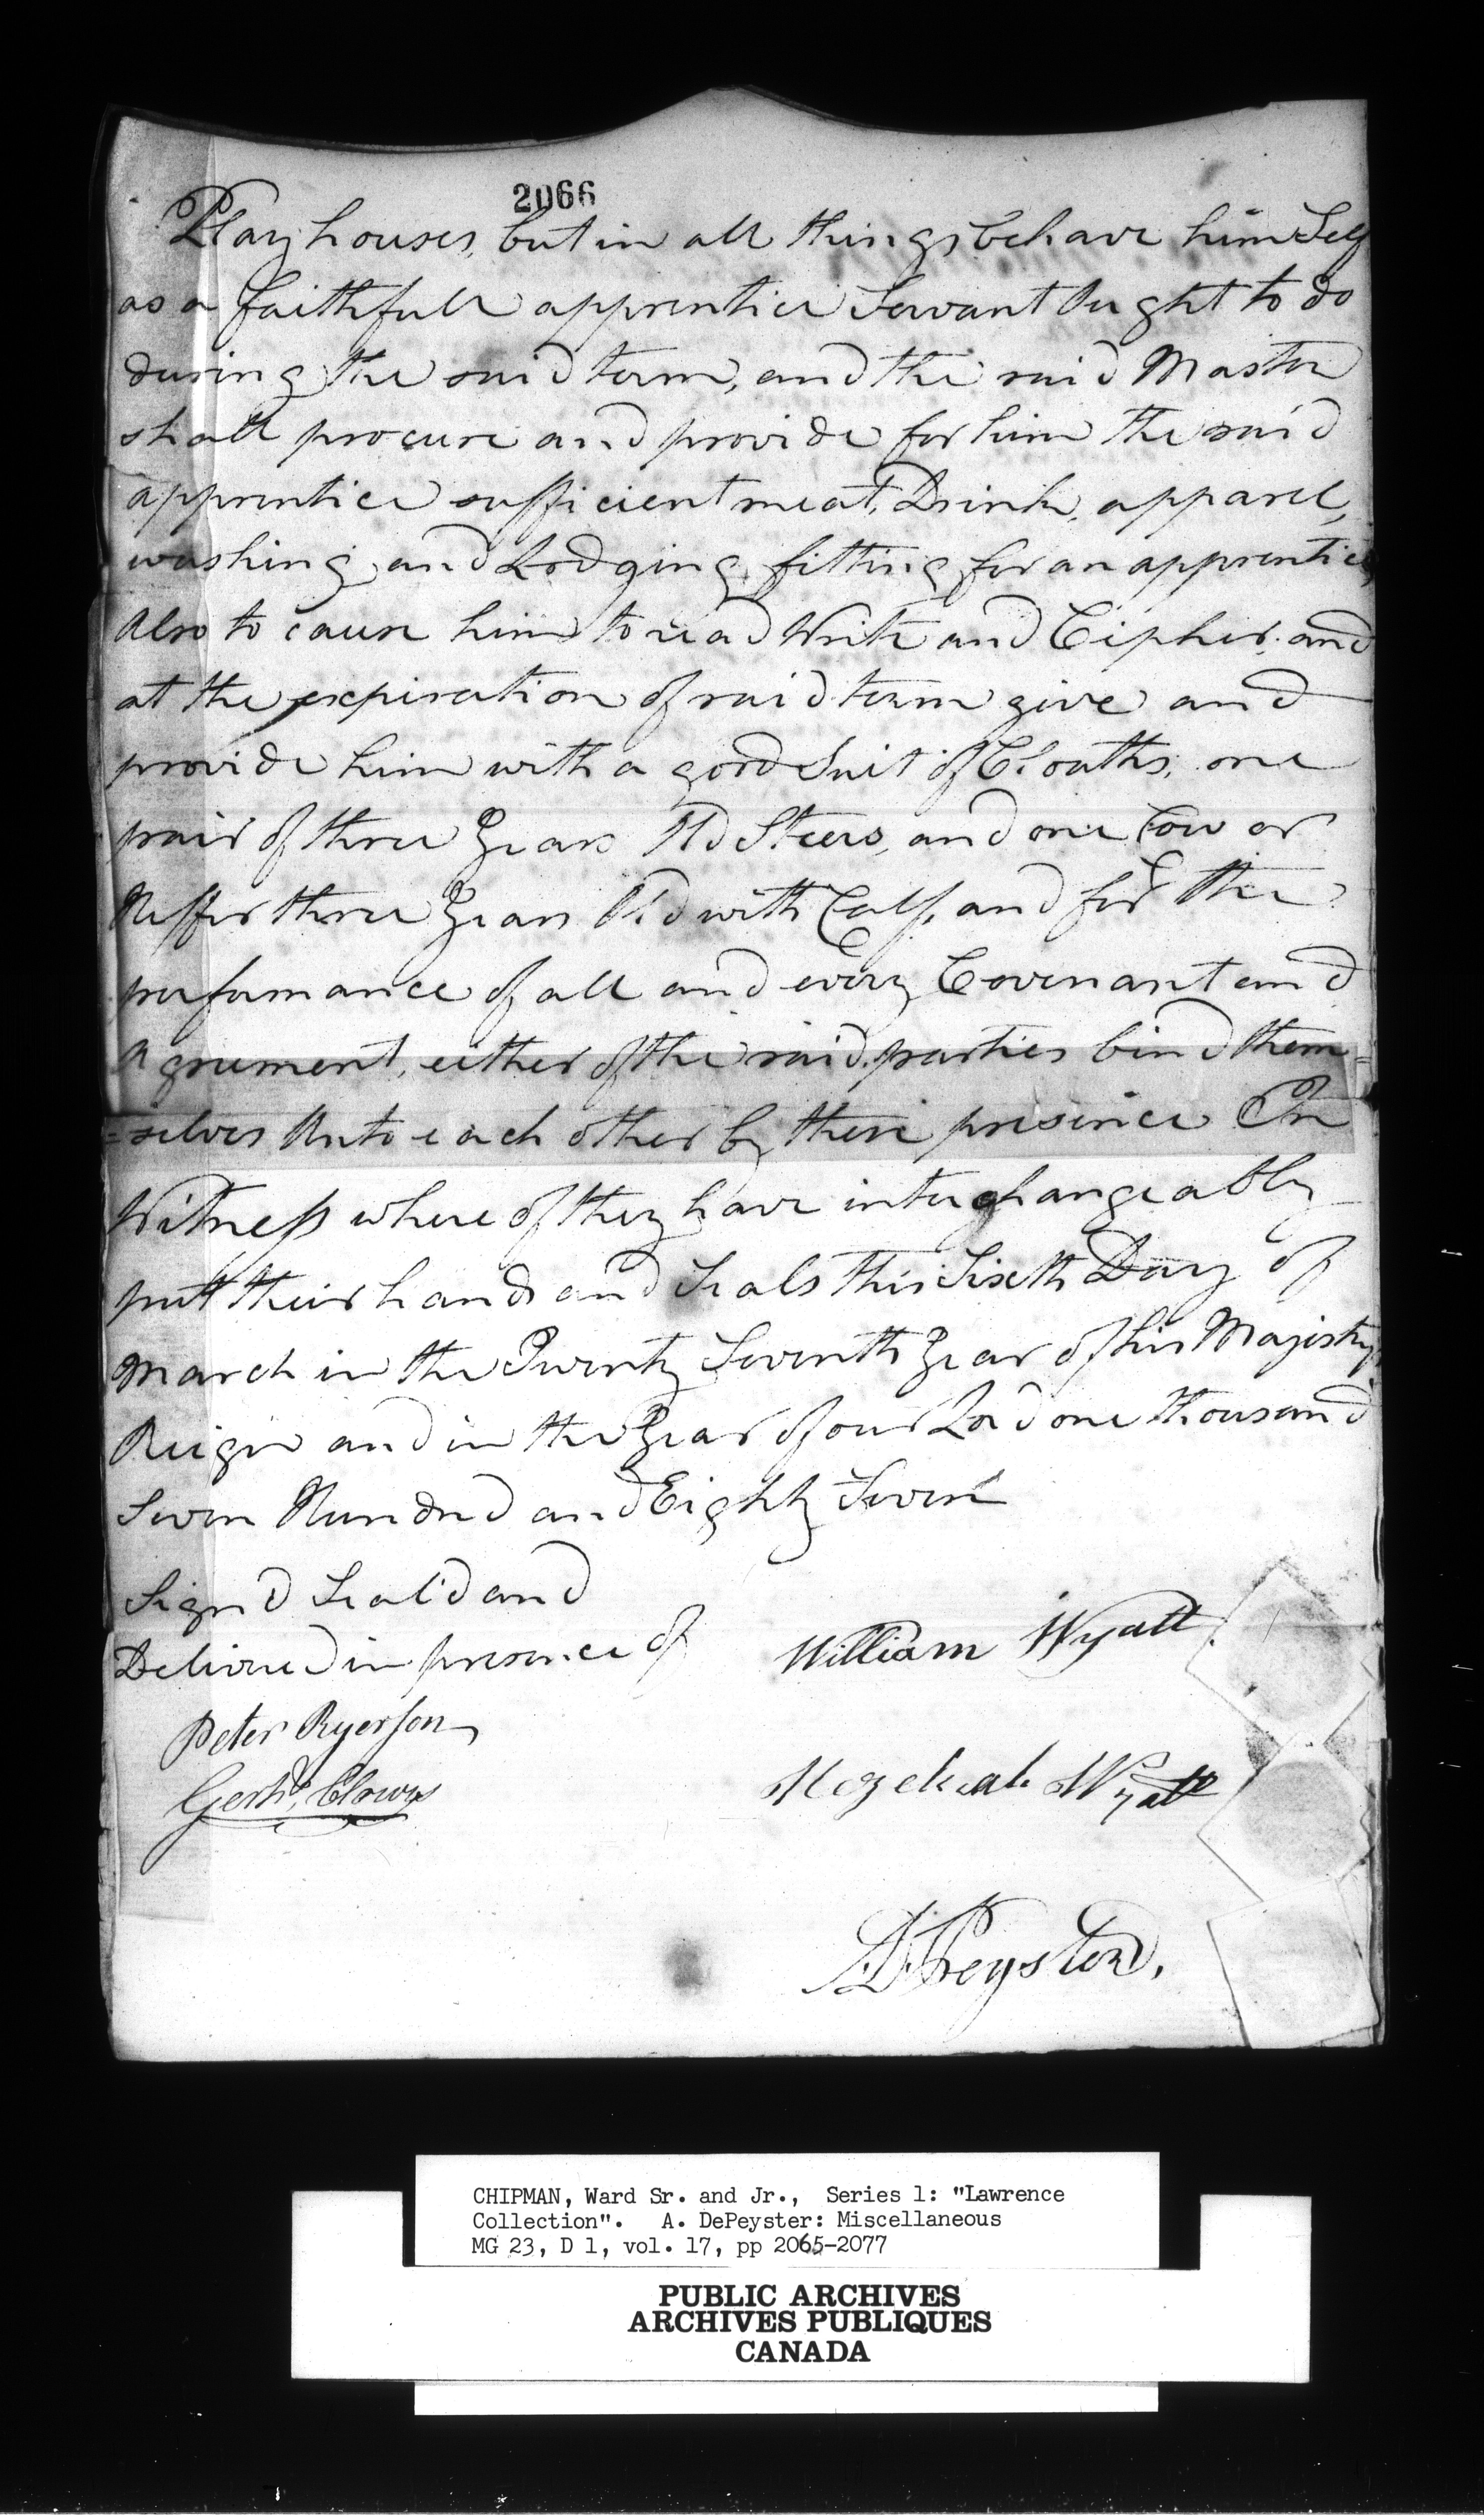 2066
Play houses, but in all things behave himself
as a faithfull apprentice Servant Ought to do
during the said term, and the said Master
shall procure and provide for him the said
apprentice sufficient meat, Drink, apparel,
washing and Lodging fitting for an apprentice,
Also to cause him to read Write and Cipher, and
at the expiration of said term give and
provide him with a good Suit of Cloaths, one
pair of three Years Old Steers, and one Cow or
Heffer three Years Old with Calf, and for the
performance of all and every Covenant and
agreement, either of the said parties bind them=
=selves Unto each other by these presence In
Witness where of they have interchangeably
putt their hands and Seals this Sixth Day of
March in the Twenty Seventh Year of his Majestys
Reign and in the Year of our Lord one thousand
Seven Hundred and Eighty Seven
Signd Seal'd and
Delivered in presence of
William Wyatt
Peter Ryerson
Gerhd. Clowes
Hezekiah Wyatt
A. DPeyster,
CHIPMAN, Ward Sr. and Jr., Series 1: "Lawrence
Collection". A. DePeyster: Miscellaneous
MG 23, D 1, vol. 17, pp 2065-2077
PUBLIC ARCHIVES
ARCHIVES PUBLIQUES
CANADA